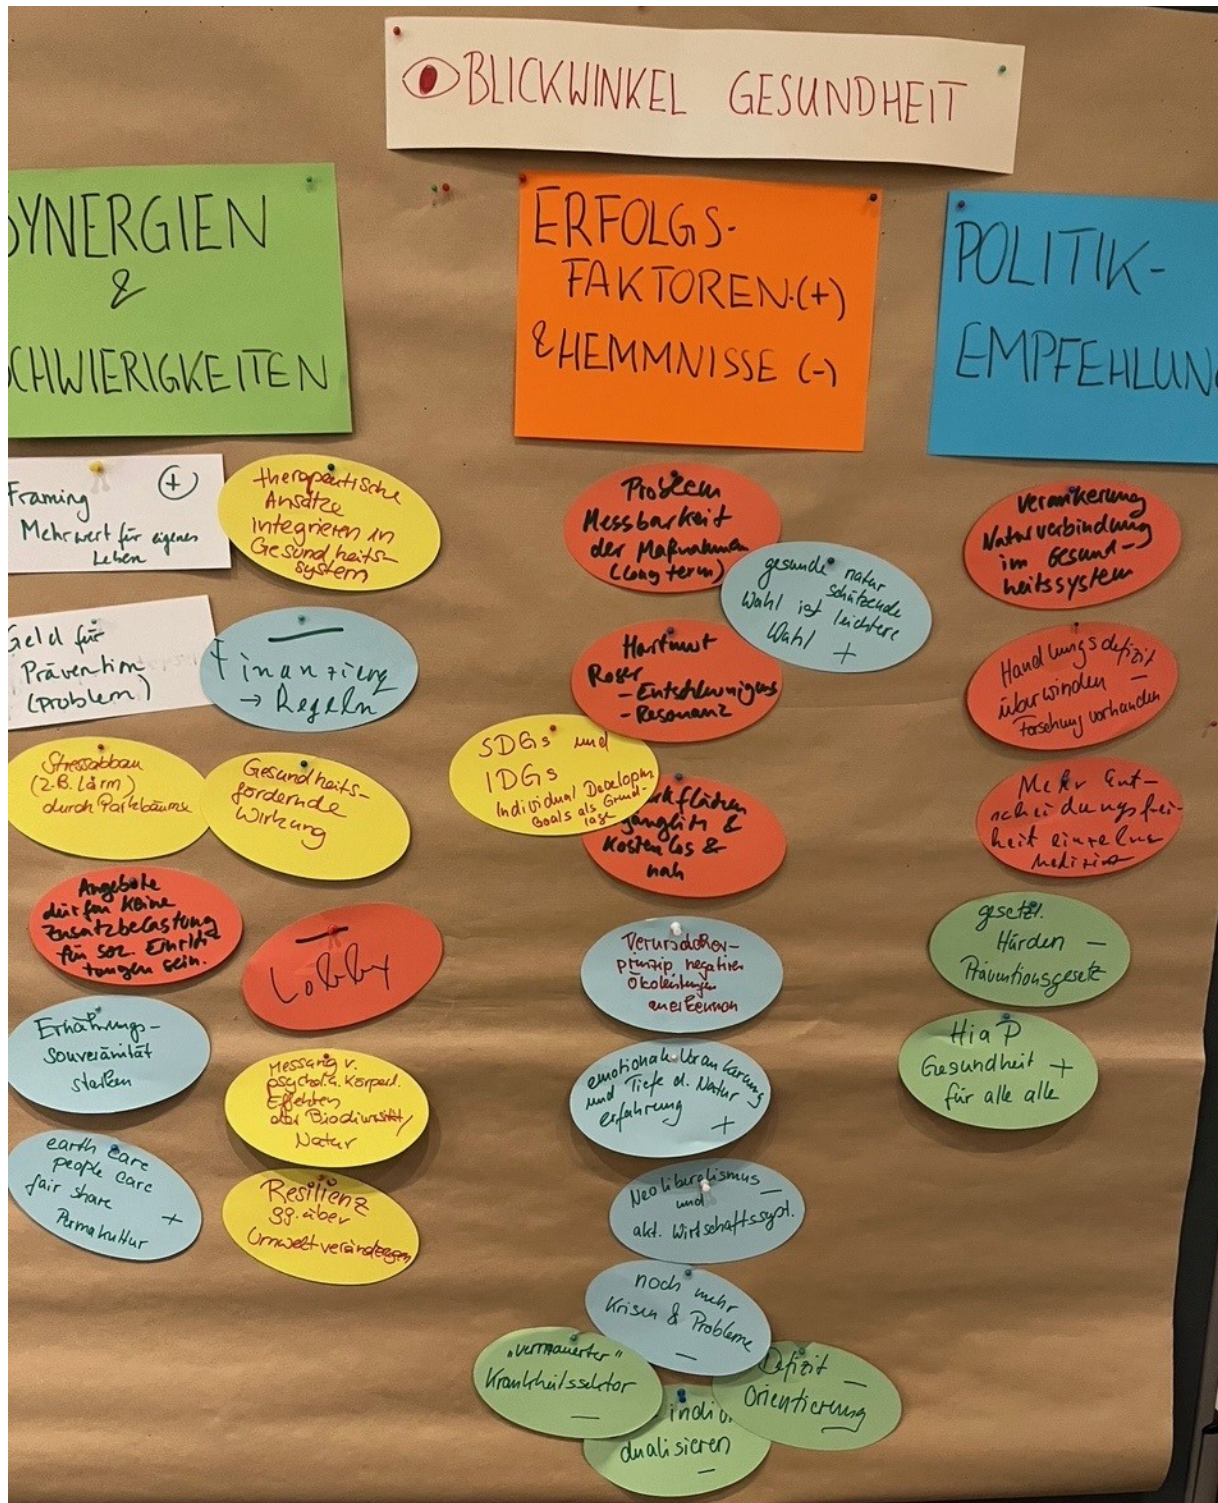 BLICKWINKEL GESUNDHEIT
SYNERGIEN
&
SCHWIERIGKEITEN
Framing +
Mehrwert für eigenes
Leben
therapeutische
Ansätze
integrieren in
Gesundheits-
system
Geld für
Prävention
(Problem)
—
Finanzierg
→ Regeln
Stressabbau
(z.B. Lärm)
durch Parkbäume
Gesundheits-
fördernde
Wirkung
Angebote
dürfen keine
Zusatzbelastung
für soz. Einrich-
tungen sein.
—
Lobby
Ernährungs-
souveränität
stärken
Messung v.
psych. u. körperl.
Effekten
der Biodiversität/
Natur
earth care
people care
fair share
Permakultur +
Resilienz
gg.über
Umweltveränderungen
ERFOLGS-
FAKTOREN (+)
& HEMMNISSE (-)
Problem
Messbarkeit
der Maßnahmen
(long term)
gesunde natur
schützende
Wahl ist leichtere
Wahl +
Hartmut
Roser
- Entschleunigung
- Resonanz
SDGs und
IDGs
Individual Developm
Goals als Grund-
lage
kostenlos &
nah
Verursacher-
prinzip negativer
anerkennen
emotionale Verankerung
und Tiefe d. Natur
erfahrung +
Neoliberalismus —
und
akt. Wirtschaftssyst.
noch mehr
Krisen & Probleme
—
"vermauerter"
Krankheitssektor
—
Defizit —
Orientierung
—
indivi
dualisieren
—
POLITIK-
EMPFEHLUNG
Verankerung
Naturverbindung
im Gesund-
heitssystem
Handlungsdefizit
überwinden —
Forschung vorhanden
Mehr Ent-
scheidungsfrei-
heit einzelner
Mediziner
gesetzl.
Hürden —
Präventionsgesetz
HiaP
Gesundheit +
für alle alle